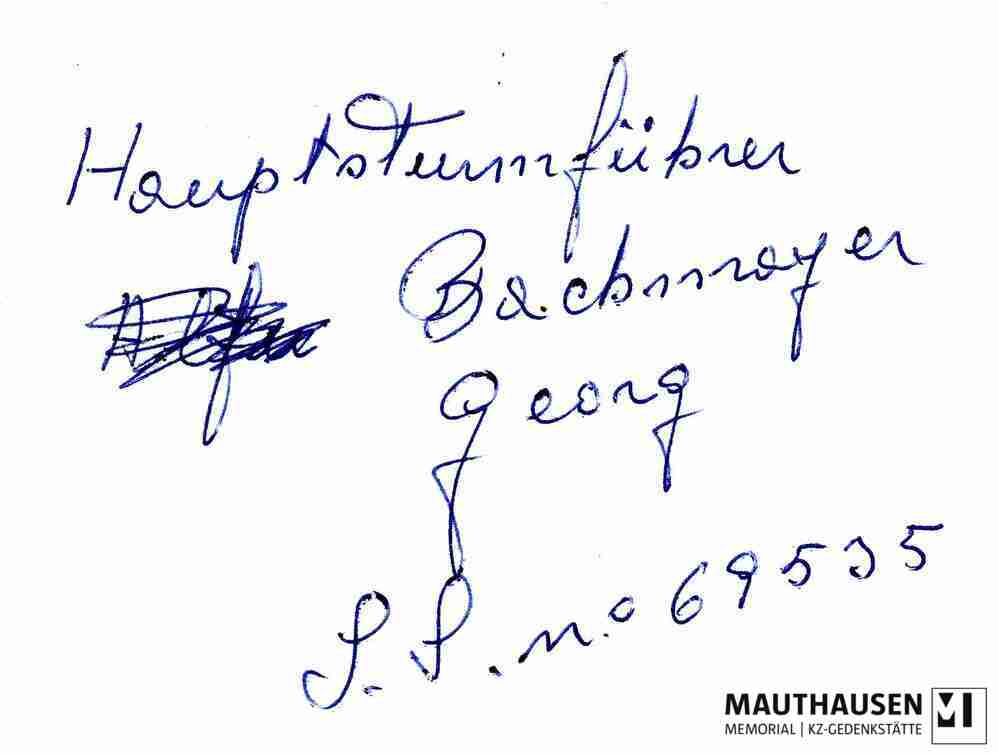 Hauptsturmführer
Bachmayer
Georg
S.S. n.o 69535
MAUTHAUSEN
MEMORIAL | KZ-GEDENKSTÄTTE